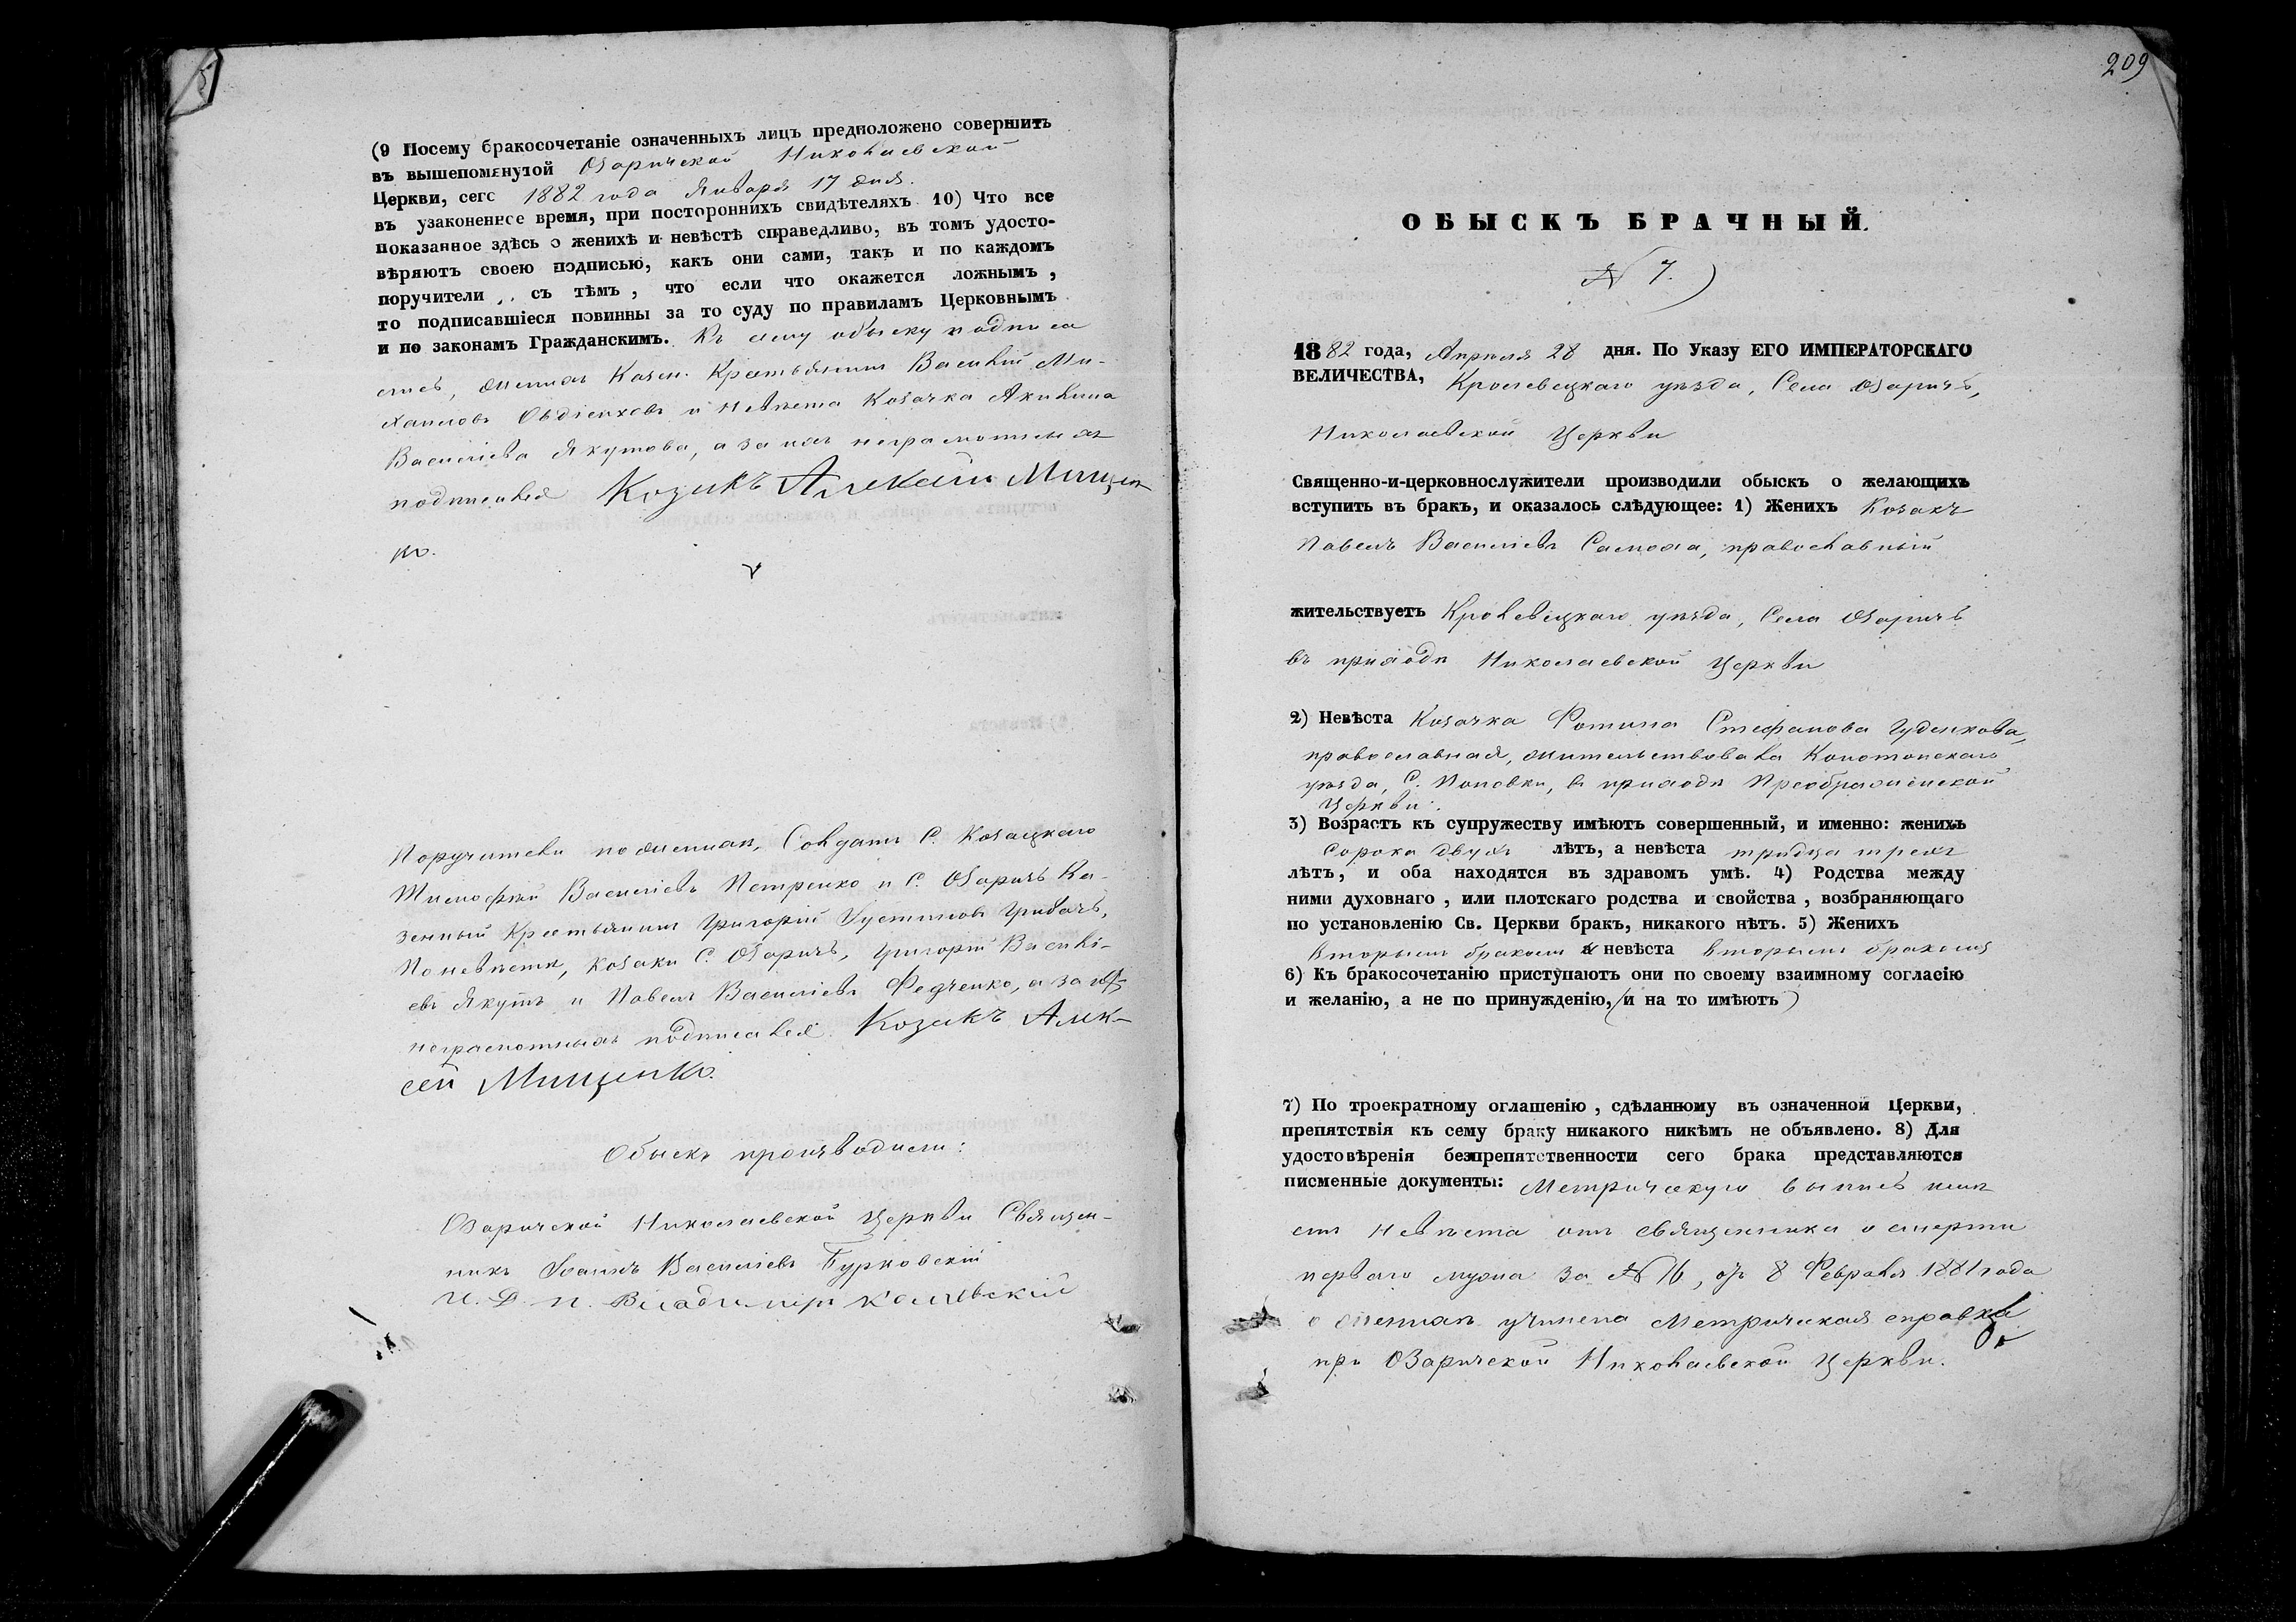 (9 Посему бракосочетаніе означенныхъ лицъ предположено совершить
въ вышепомянутой Озаричской Николаевской
Церкви, сего 1882 года Января 17 дня.
въ узаконенное время, при постороннихъ свидѣтеляхъ 10) Что все
показанное здѣсь о женихѣ и невѣстѣ справедливо, въ томъ удосто-
вѣряютъ своею подписью, какъ они сами, такъ и по каждомъ
поручители, съ тѣмъ, что если что окажется ложнымъ,
то подписавшіеся повинны за то суду по правиламъ Церковнымъ
и по законамъ Гражданскимъ. Къ сему обыску подписа
лись, женихъ Казен. Крестьянинъ Василій Ми-
хаиловъ и невѣста Козачка Акилина
Василіева Якутова, а за нихъ неграмотныхъ
подписался Козакъ Алексѣй Мищен
ко.
Поручители по женихѣ, Солдатъ С. Козацкаго
Тимофѣй Василіевъ Петренко и С. Озаричъ Ка-
зенный Крестьянинъ Григорій Іустиновъ Грибачъ,
По невѣстѣ, козаки С. Озаричъ, Григорій Василі-
евъ Якутъ и Павелъ Василіевъ Федченко, а за
неграмотныхъ подписался Козакъ Алек-
сей Мищенко.
Обыскъ производили:
Озаричской Николаевской Церкви Священ-
никъ Іоаннъ Василіевъ Бурковскій
И. Д. П. Владимиръ
209
ОБЫСКЪ БРАЧНЫЙ.
№ 7.
1882 года, Апрѣля 28 дня. По Указу ЕГО ИМПЕРАТОРСКАГО
ВЕЛИЧЕСТВА, Кролевецкаго уѣзда, Села Озаричъ,
Николаевской Церкви
Священно-и-церковнослужители производили обыскъ о желающихъ
вступить въ бракъ, и оказалось слѣдующее: 1) Женихъ Козакъ
Павелъ Василіевъ Самоха, православный
жительствуетъ Кролевецкаго уѣзда, Села Озаричъ
въ приходѣ Николаевской Церкви
2) Невѣста Козачка Фотина Стефанова Гуденкова,
православная, жительствовала Конотопскаго
уѣзда, С. Поповки, въ приходѣ Преображенской
Церкви.
3) Возрастъ къ супружеству имѣютъ совершенный, и именно: женихъ
сорока двухъ лѣтъ, а невѣста тридца трехъ
лѣтъ, и оба находятся въ здравомъ умѣ. 4) Родства между
ними духовнаго, или плотскаго родства и свойства, возбраняющаго
по установленію Св. Церкви бракъ, никакого нѣтъ. 5) Женихъ
вторымъ бракомъ и невѣста вторымъ бракомъ
6) Къ бракосочетанію приступаютъ они по своему взаимному согласію
и желанію, а не по принужденію, (и на то имѣютъ)
7) По троекратному оглашенію, сдѣланному въ означенной Церкви,
препятствія къ сему браку никакого никѣмъ не объявлено. 8) Для
удостовѣренія безпрепятственности сего брака представляются
писменные документы: Метрическую выпись имѣ
етъ невѣста отъ священника о смерти
перваго мужа за № 16, отъ 8 Февраля 1881 года
о женихѣ учинена Метрическая справка
при Озаричской Николаевской Церкви.